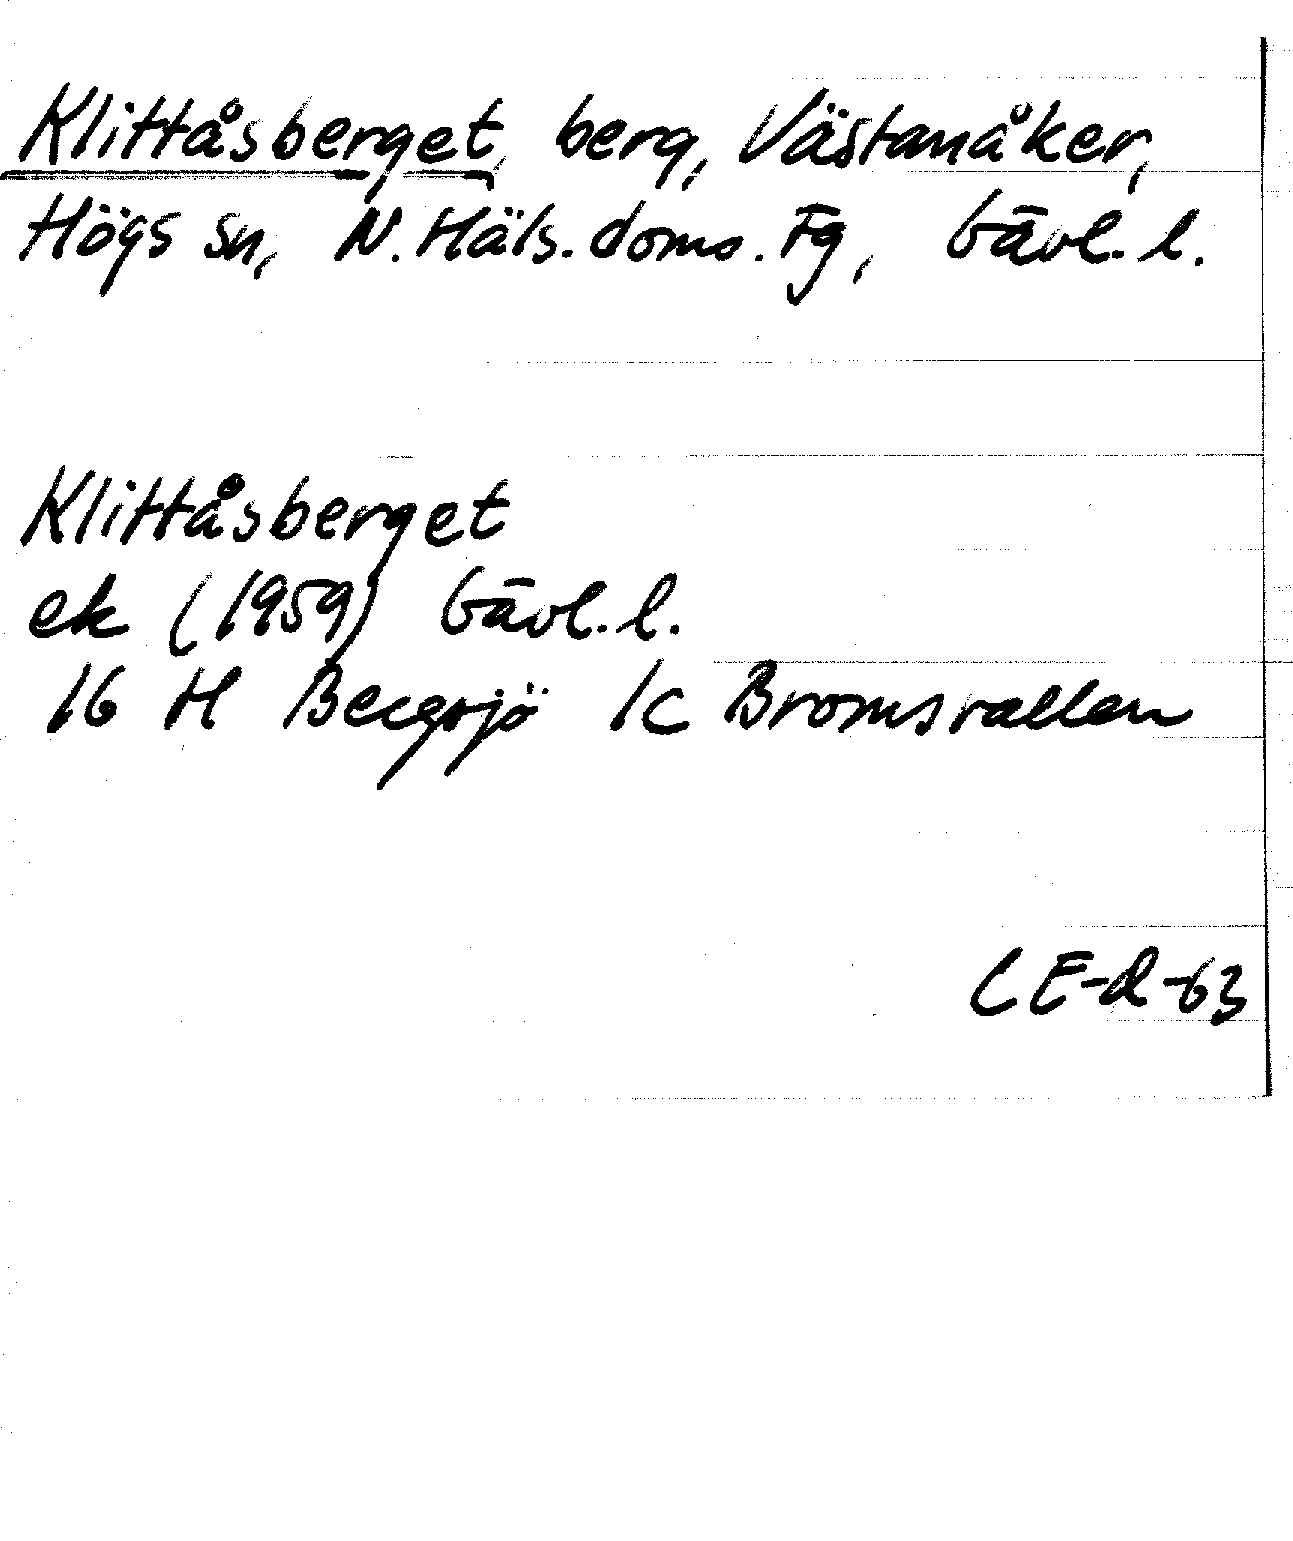 Klittåsberget, berg, Västanåker,
Högs sn, N. Häls. doms. Fg, Gävl. l.
Klittåsberget
ek (1959) Gävl. l.
16 H Bergsjö 1c Bromsvallen
CE-d-63